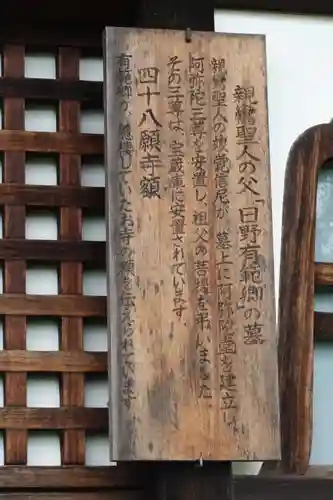 親鸞聖人の父「日野有範卿」の墓
親鸞聖人の妙覚信尼が、墓上に阿弥陀堂を建立し
阿弥陀三尊を安置し、祖父の菩提を弔いました。
その三尊は、宝蔵庫に安置されています。
四十八願寺額
有範が 信していたお寺の額を伝えられています